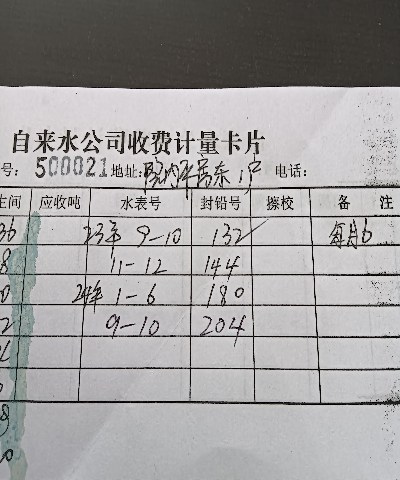 自来水公司收费计量卡片
号: 500021 地址: 院内平房东1户 电话:
主间 应收吨 水表号 封铅号 擦校 备 注
36 23年 9-10 132 每月6
8 11-12 144
0 24年 1-6 180
2 9-10 204
8
0